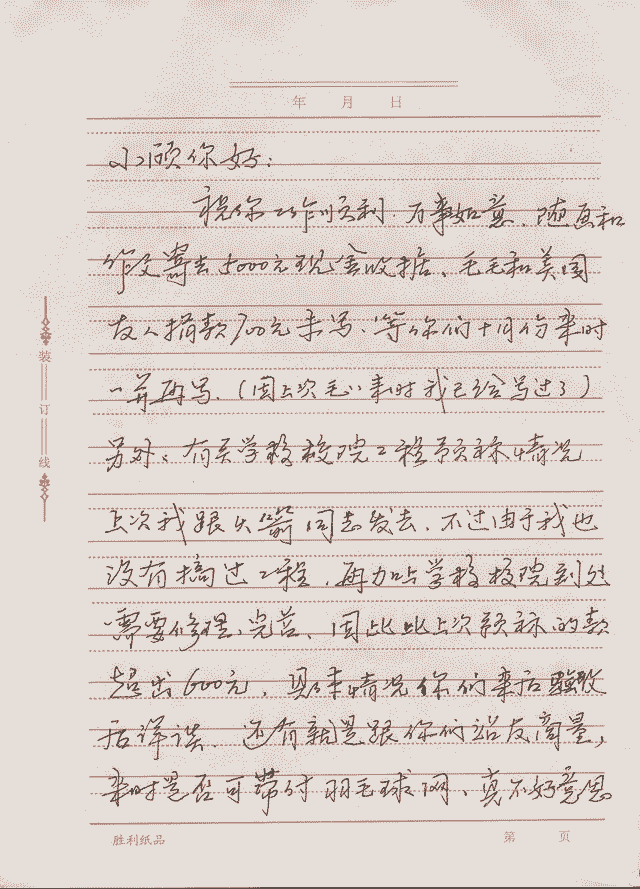 年 月 日
小顾你好：
祝你工作顺利.万事如意.随画和
作文寄去5000元现金收据、毛毛和美国
友人捐款700元未写.等你们十月份来时
一并再写.（因上次毛小来时我已经写过了）
另外、有关学校校院工程预称情况
上次我跟火箭同志发去.不过由于我也
没有搞过工程.再加上学校校院到处
需要修理、完善、因此比上次预称的款
超出600元.具体情况你们来后验收
后详谈.还有就是跟你们站友商量,
来时是否可带付羽毛球网、真不好意思
装
订
线
胜利纸品
第 页